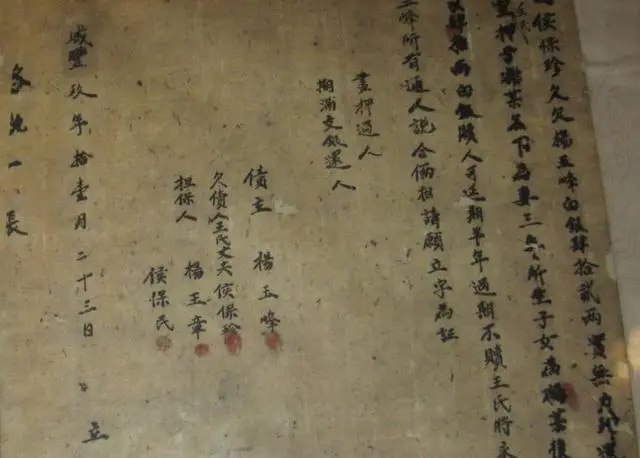 侯保珍久欠楊玉峰白銀肆拾貳兩實無力
王氏
押于楊某名下為妻三年所生子女為楊某後
肆拾兩白銀贖人可延期半年過期不贖王氏將
玉峰所有通人說合倆相請願立字為証
畫押過人
期滿交銀還人
債主 楊玉峰
欠債人王氏丈夫侯保珍
担保人 楊玉章
侯保民
咸豐玖年拾壹月二十三日 立